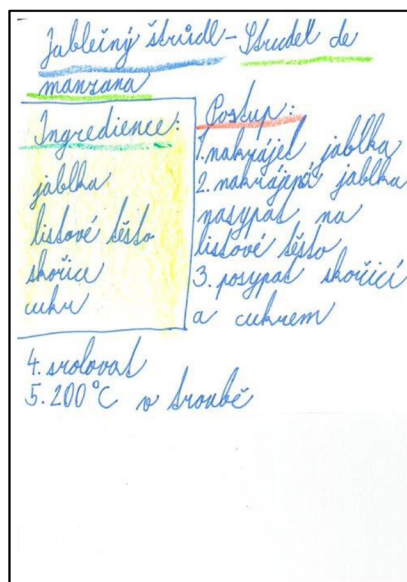 Jablečný štrůdl - Strudel de
manzana
Ingredience:
jablka
listové těsto
skořice
cukr
Postup:
1. nakrájet jablka
2. nakrájená jablka
nasypat na
listové těsto
3. posypat skořicí
a cukrem
4. srolovat
5. 200°C v troubě